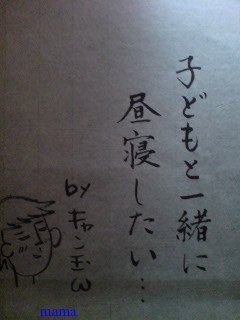 子どもと一緒に
昼寝したい…
by キャン玉ω
mama